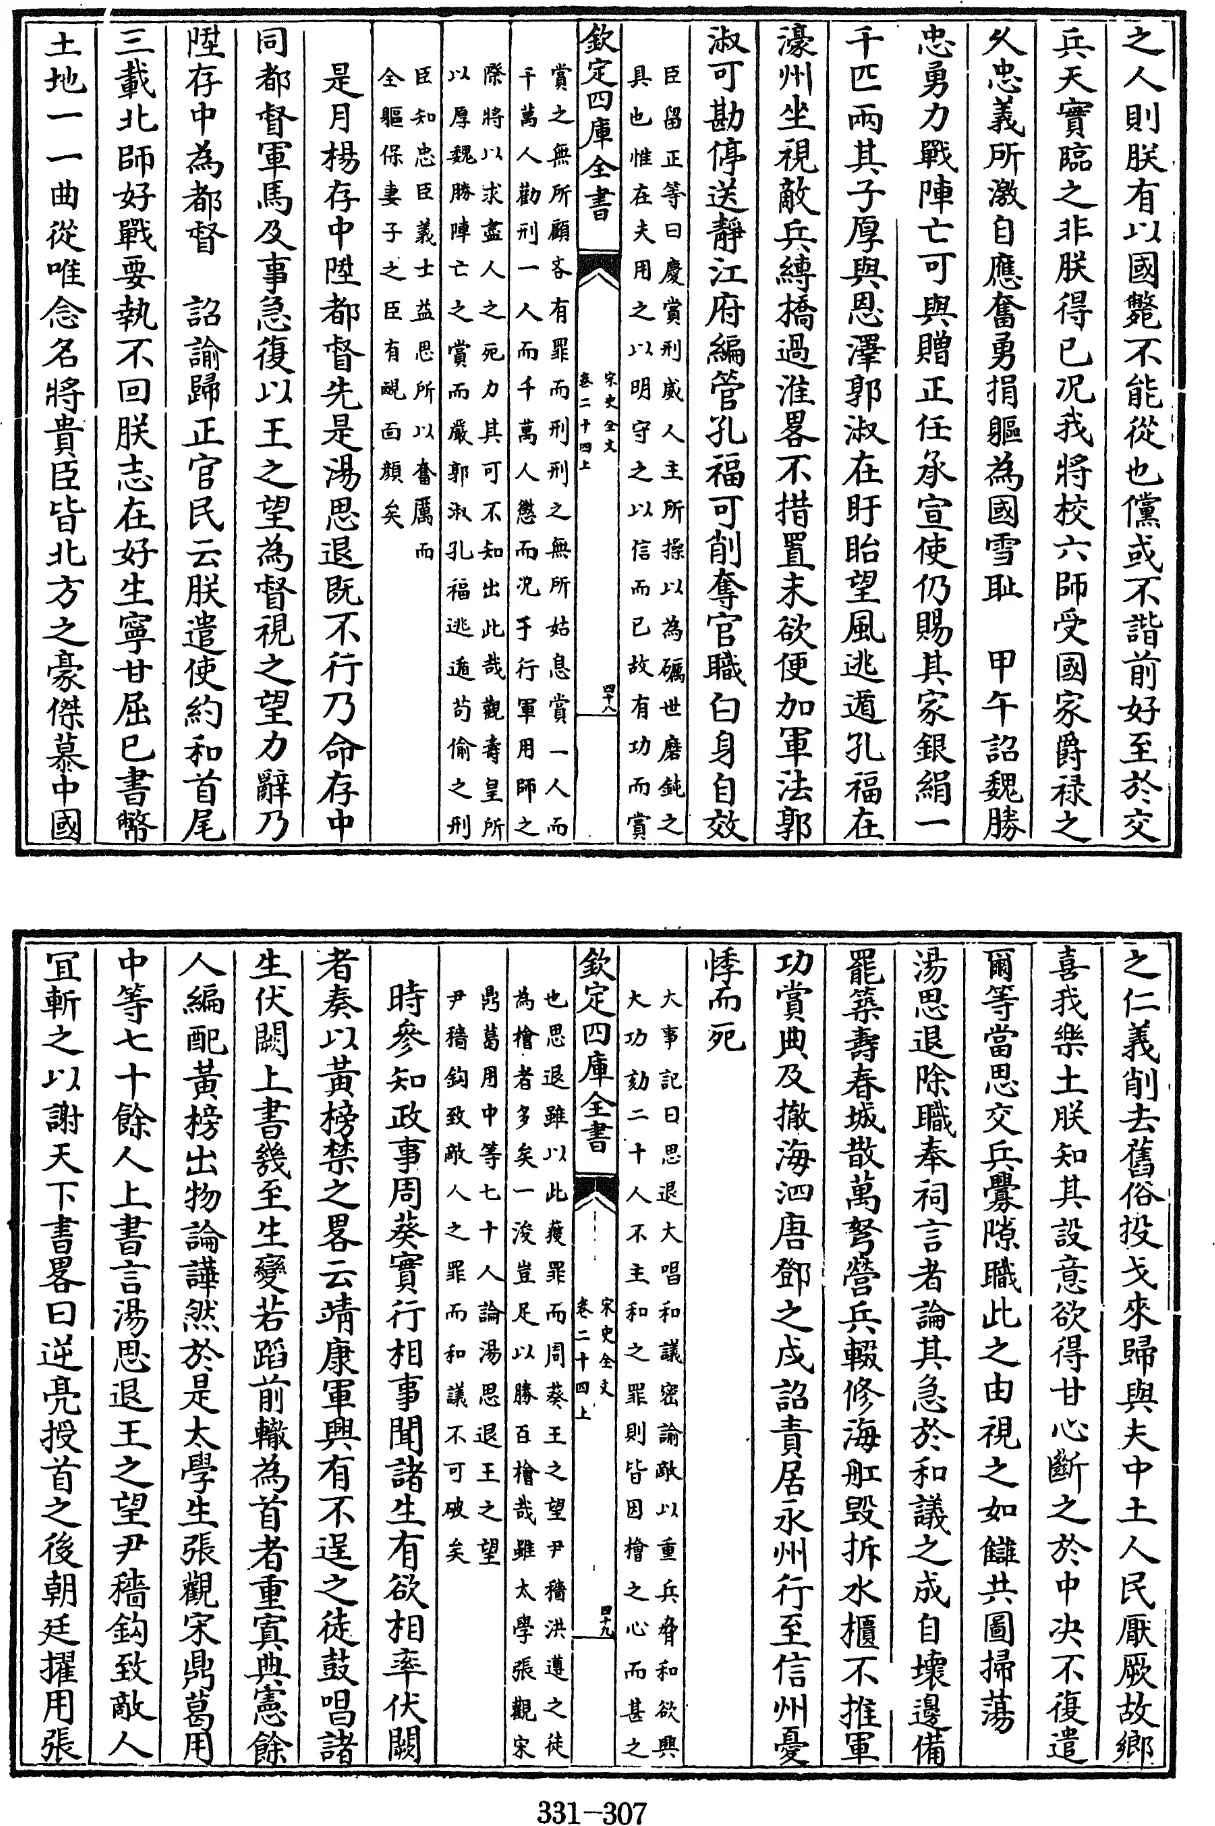 之人則朕有以國斃不能從也儻或不諧前好至於交
兵天實臨之非朕得已况我將校六師受國家爵禄之
乆忠義所激自應奮勇捐軀為國雪耻　甲午詔魏勝
忠勇力戰陣亡可與贈正任承宣使仍賜其家銀絹一
千匹兩其子厚與恩澤郭淑在盱眙望風逃遁孔福在
濠州坐視敵兵縳橋過淮畧不措置末欲便加軍法郭
淑可勘停送靜江府編管孔福可削奪官職白身自效
臣留正等曰慶賞刑威人主所操以為礪世磨鈍之
具也惟在夫用之以明守之以信而已故有功而賞
欽定四庫全書
宋史全文
卷二十四上
四十八
賞之無所顧吝有罪而刑刑之無所姑息賞一人而
千萬人勸刑一人而千萬人懲而况于行軍用師之
際將以求盡人之死力其可不知出此哉觀壽皇所
以厚魏勝陣亡之賞而嚴郭淑孔福逃遁苟偷之刑
臣知忠臣義士益思所以奮厲而
全軀保妻子之臣有靦面顏矣
是月楊存中陞都督先是湯思退既不行乃命存中
同都督軍馬及事急復以王之望為督視之望力辭乃
陞存中為都督　詔諭歸正官民云朕遣使約和首尾
三載北師好戰要執不回朕志在好生寧甘屈已書幣
土地一一曲從唯念名將貴臣皆北方之豪傑慕中國
之仁義削去舊俗投戈來歸與夫中土人民厭厥故鄉
喜我樂土朕知其設意欲得甘心斷之於中决不復遣
爾等當思交兵釁隙職此之由視之如讎共圖掃蕩
湯思退除職奉祠言者論其急於和議之成自壞邊備
罷築壽春城散萬弩營兵輟修海舡毁拆水櫃不推軍
功賞典及撤海泗唐鄧之戍詔責居永州行至信州憂
悸而死
大事記曰思退大唱和議密諭敵以重兵脅和欲興
大功劾二十人不主和之罪則皆因檜之心而甚之
欽定四庫全書
宋史全文
卷二十四上
四十九
也思退雖以此獲罪而周葵王之望尹穡洪遵之徒
為檜者多矣一浚豈足以勝百檜哉雖太學張觀宋
鼎葛用中等七十人論湯思退王之望
尹穡鈎致敵人之罪而和議不可破矣
時參知政事周葵實行相事聞諸生有欲相率伏闕
者奏以黃榜禁之畧云靖康軍興有不逞之徒鼓唱諸
生伏闕上書幾至生變若蹈前轍為首者重寘典憲餘
人編配黃榜出物論譁然於是太學生張觀宋鼎葛用
中等七十餘人上書言湯思退王之望尹穡鈎致敵人
冝斬之以謝天下書畧曰逆亮授首之後朝廷擢用張
331-307